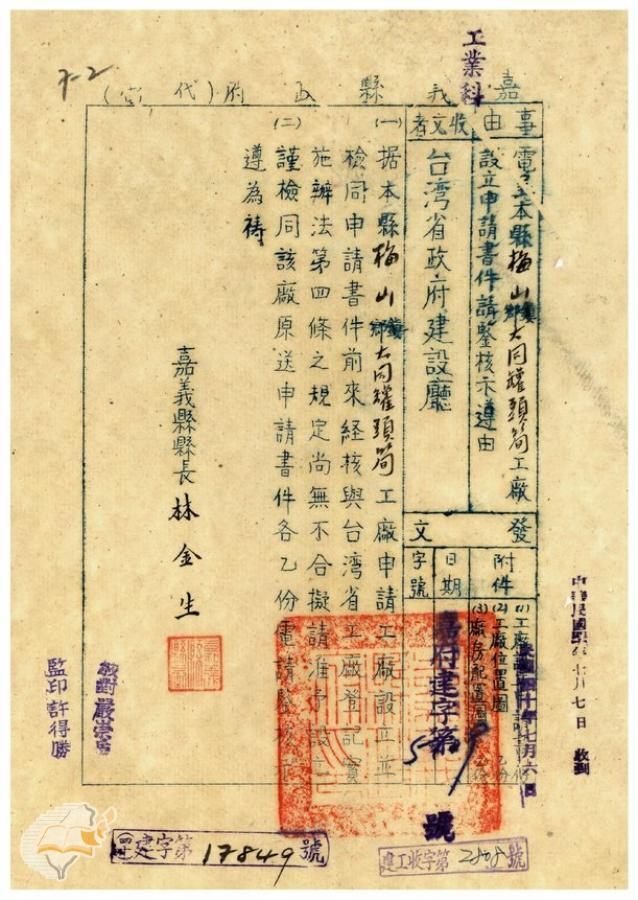 7-2
工業科
嘉義縣政府(代電)
事由
電送本縣梅山鄉鎮大同罐頭筍工廠
設立申請書件請鑒核示遵由
收文者
台湾省政府建設廳
發文
附件
(1)工廠設立申請書 乙份
(2)工廠位置圖 乙份
(3)廠房配置圖 乙份
日期
民國四十年七月六日
字號
嘉府建字第
號
(一)据本縣梅山鄉鎮大同罐頭筍工廠申請工廠設立並
檢同申請書件前來経核與台湾省工廠登記實
施辦法第四條之規定尚無不合擬請准予設立
(二)謹檢同該廠原送申請書件各乙份電請鑒核示
遵為禱
嘉義縣縣長 林金生
監印 許得勝
校對
中華民國四十年七月七日 收到
建字第17849號
建工收字第2808號